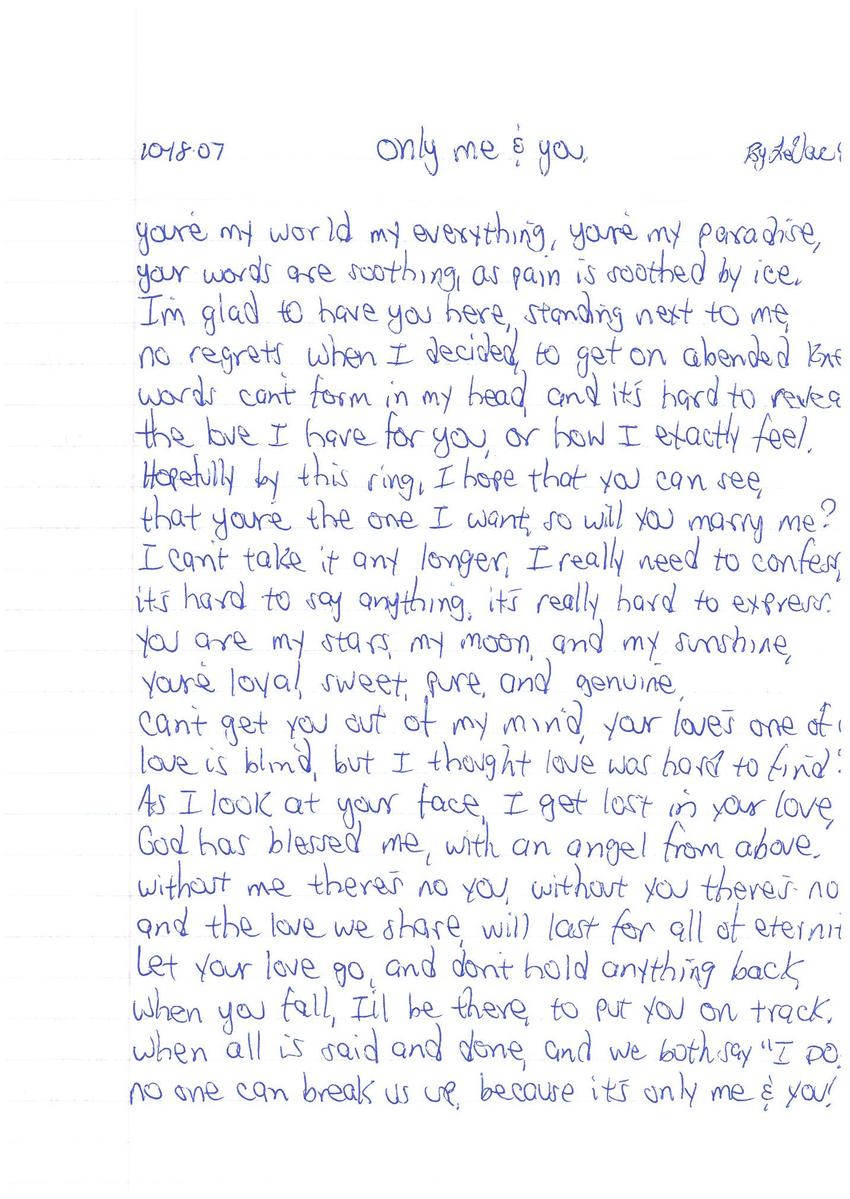 10-18-07 Only me & you.
you're my world my everything, you're my paradise,
your words are soothing, as pain is soothed by ice.
I'm glad to have you here, standing next to me,
no regrets when I decided, to get on abended
words can't form in my head, and it's hard to revea
the love I have for you, or how I exactly feel.
Hopefully by this ring, I hope that you can see,
that you're the one I want, so will you marry me?
I can't take it any longer, I really need to confess,
it's hard to say anything, it's really hard to express.
You are my stars, my moon, and my sunshine,
you're loyal, sweet, pure, and genuine,
can't get you out of my mind, your love's one of
love is blind, but I thought love was hard to find
As I look at your face, I get lost in your love,
God has blessed me, with an angel from above.
without me there's no you, without you there's no
and the love we share, will last for all of eternit
Let your love go, and don't hold anything back,
when you fall, I'll be there, to put you on track.
when all is said and done, and we both say "I DO.
no one can break us up, because it's only me & you!